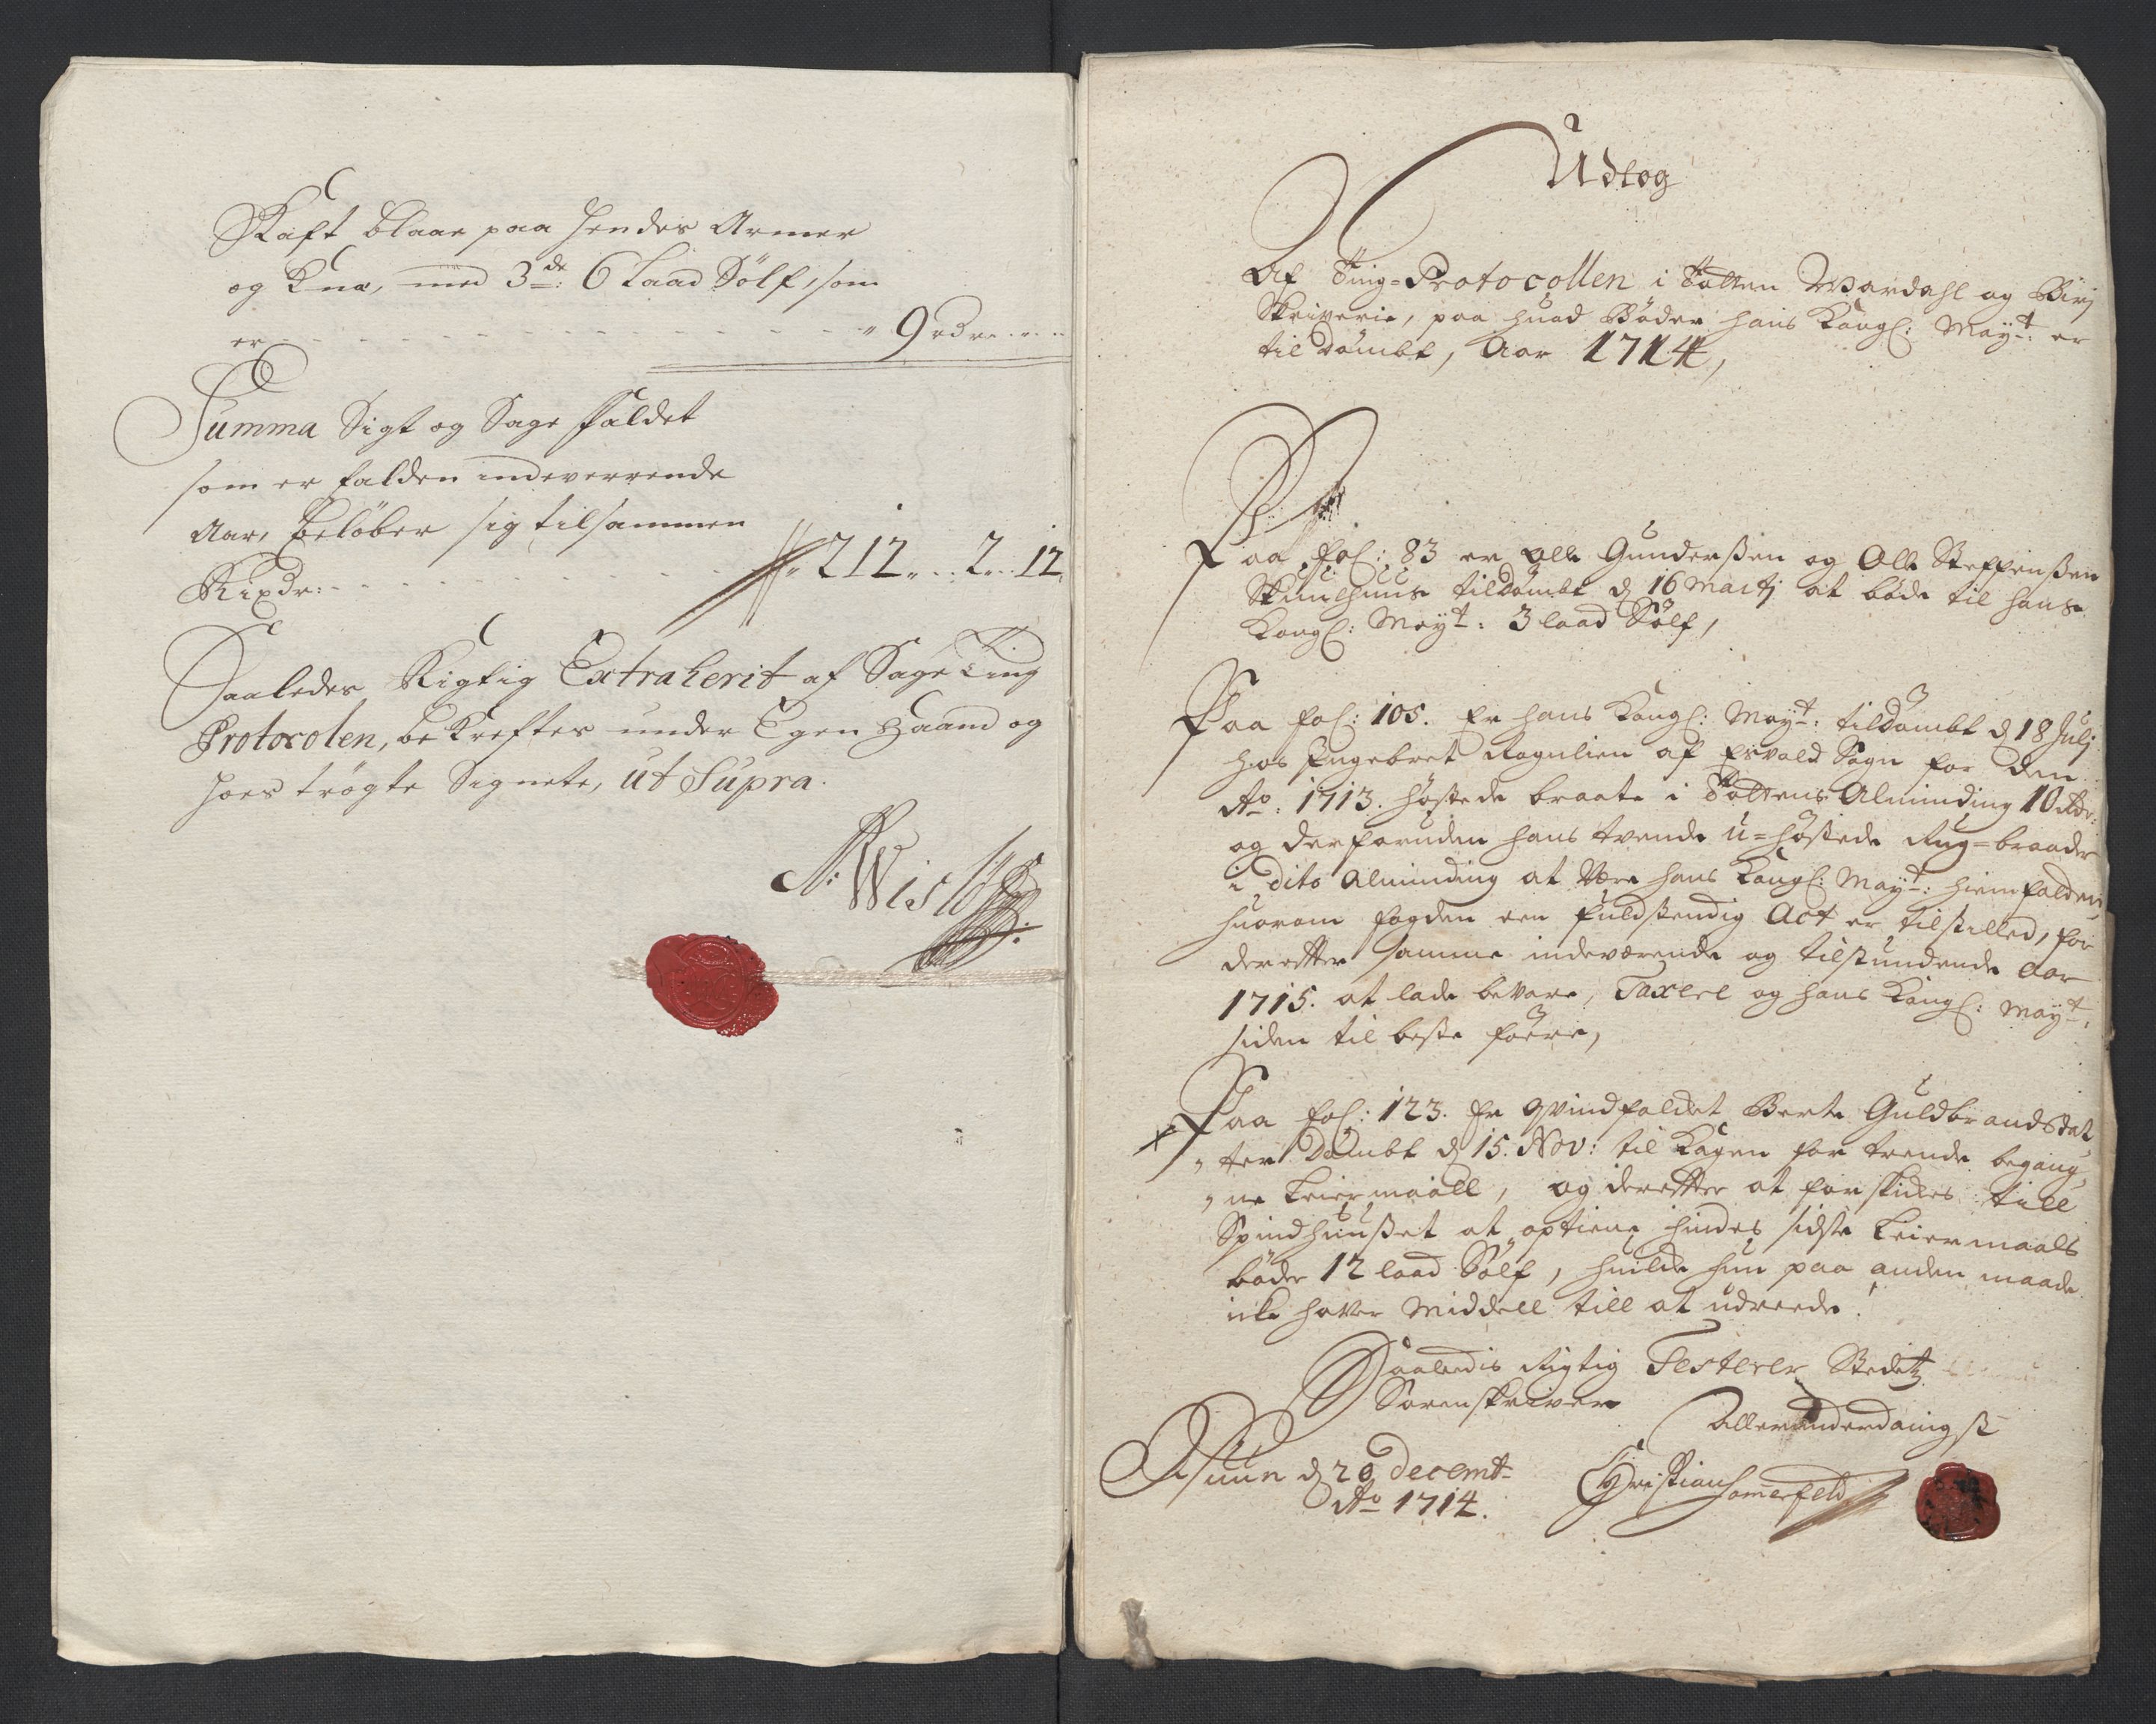 Skaft blaae paa hendes Armer
og Knæ, med 3de: 6 Laad Sölf, som
er - - - - - - 9 rdr
Summa Sigt og Sage faldet
som er falden indeverrende
Aar, belöber sig tilsammen
Rixdr: - - - - 212 .. 2 .. 12.
Saaledes Rigtig Extraherit af Sage Ting
Protocolen, bekrefter under Egen Haand og
hoes trögte Signete, ut Supra.
Udtog
Af Ting-Protocollen i Totten Wardahl og Birj
Skriverie, paa huad Bøder hans Kongl: Mayt: er
til dømbt, Aar 1714,
Paa fol: 83 er Olle Gunderßen og Olle Steffenßen
Skuulhuus tildømbt d 16 Martj at bøde til hans
Kongl: Mayt: 3 laad Sölf,
Paa fol: 105. Er hans Kongl: Mayt: tildømbt d 18 Julj
hos Engebret Rognlien af Eswold Sogn for den
Ao: 1713. høstede braate i Tottens Alminding 10 rdr:
og derforuden hans tvende u=høstede Rug=braader
i dito Alminding at være hans Kongl: Mayt: hiemfalden,
huorom fogden een fuldstendig Act er tilstilled, for
derefter samme indeværende og tilstundende Aar
1715. at lade bevare, Taxere og hans Kongl: Mayt.
siden til beste føre,
Paa fol: 123. Er qvindfolcket Berte Guldbrandsdat
ter Dømbt d 15. Nov: til Kagen for trende begang
ne Leiermaall, og derefter at forskickes till
Spindhuußet at optiene hindes sidste Leiermaals
bøder 12 laad Sölf, huilche hun paa anden maade
icke haver Middell till at udreede.
Saaledis Rigtig Testerer Stedetz
Sorenskriver
allerunderdanigst
d 20 decembr
Ao 1714.
Christian Somerfeld